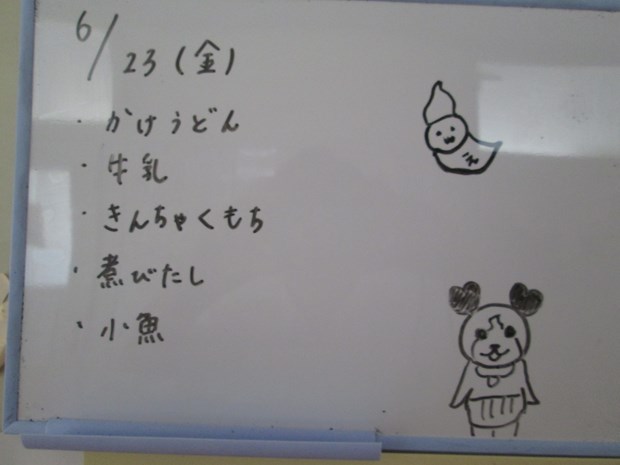 6/23(金)
・かけうどん
・牛乳
・きんちゃくもち
・煮びたし
・小魚
え